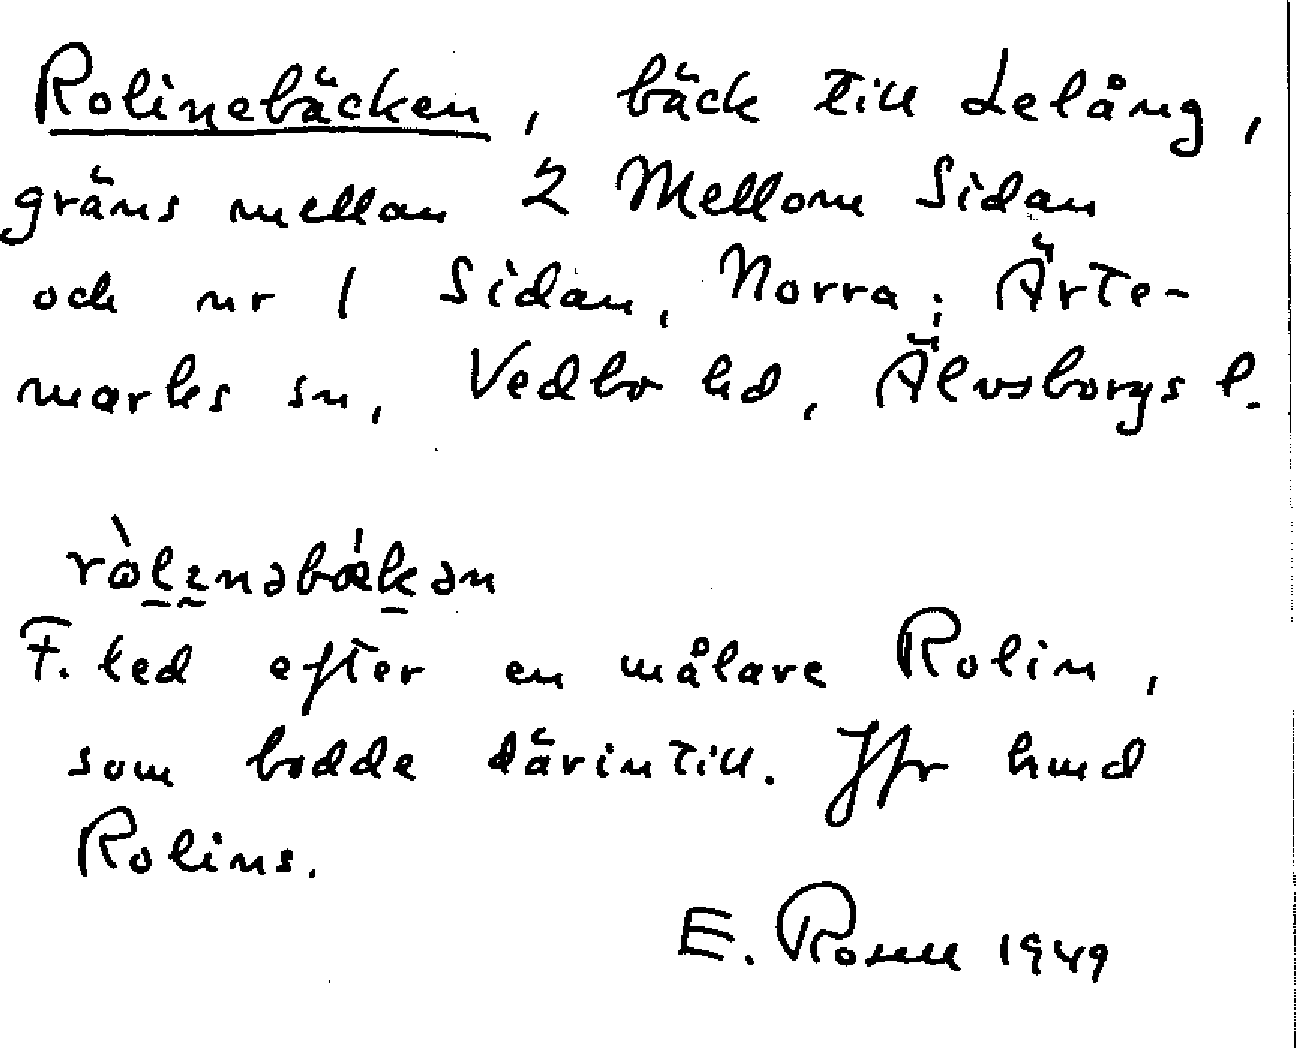 Rolinebäcken, bäck till Lelång,
gräns mellan 2 Mellom Sidan
och nr 1 Sidan, Norra; Ärte-
marks sn, Vedbo hd, Älvsborgs l.
ròlɪnəbǽkən
F. led efter en målare Rolin,
som bodde därintill. Jfr hmd
Rolins.
E. Rosell 1949